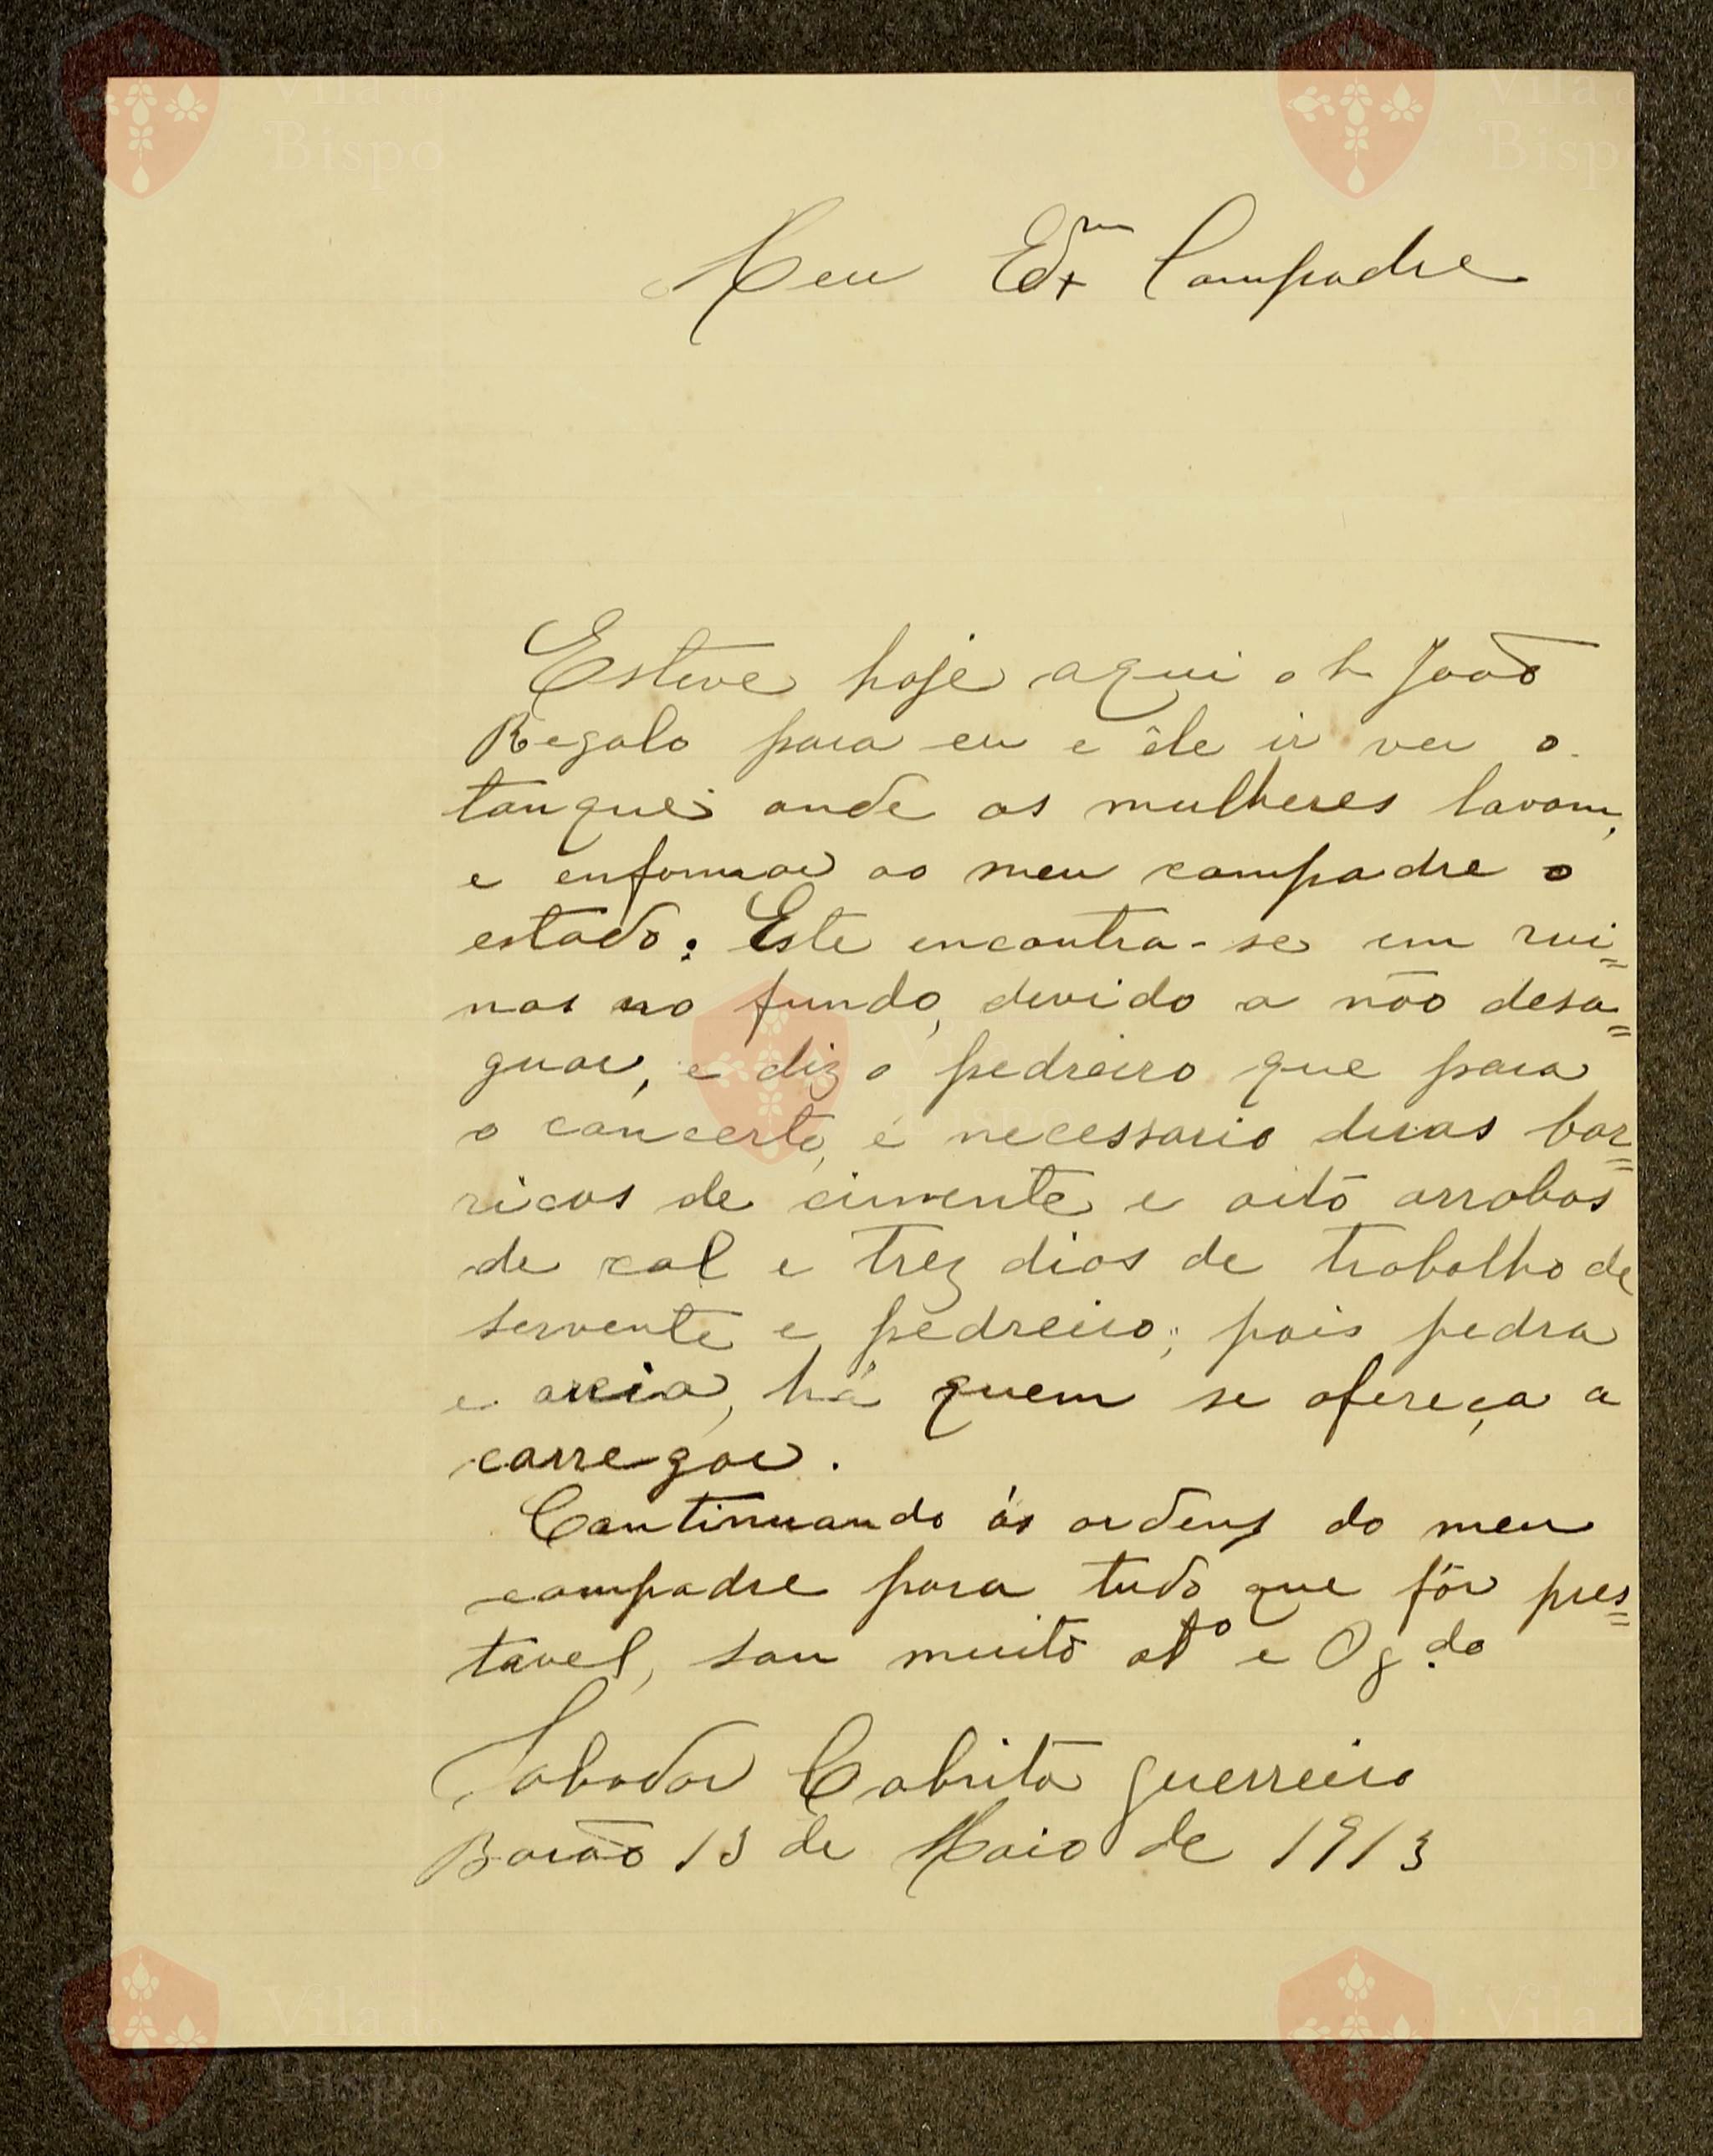 Meu Exmo Compadre
Esteve hoje aqui o Sr João
Regalo para eu e êle ir ver o
tanque onde as mulheres lavam,
e enformar ao meu compadre o
estado. Este encontra-se em rui=
nas no fundo, devido a não desa=
guar, e diz o pedreiro que para
o concerto, é necessario duas bar=
ricas de cimento e oito arrobas
de cal e trez dias de trabalho de
servente e pedreiro; pois pedra
e areia, há quem se ofereça a
carregar.
Continuando ás ordens do meu
compadre para tudo que fôr pres=
tavel, sou muito atº e Og.do
Cabrita Guerreiro
Barão 13 de Maio de 1913
Vila do
Bispo